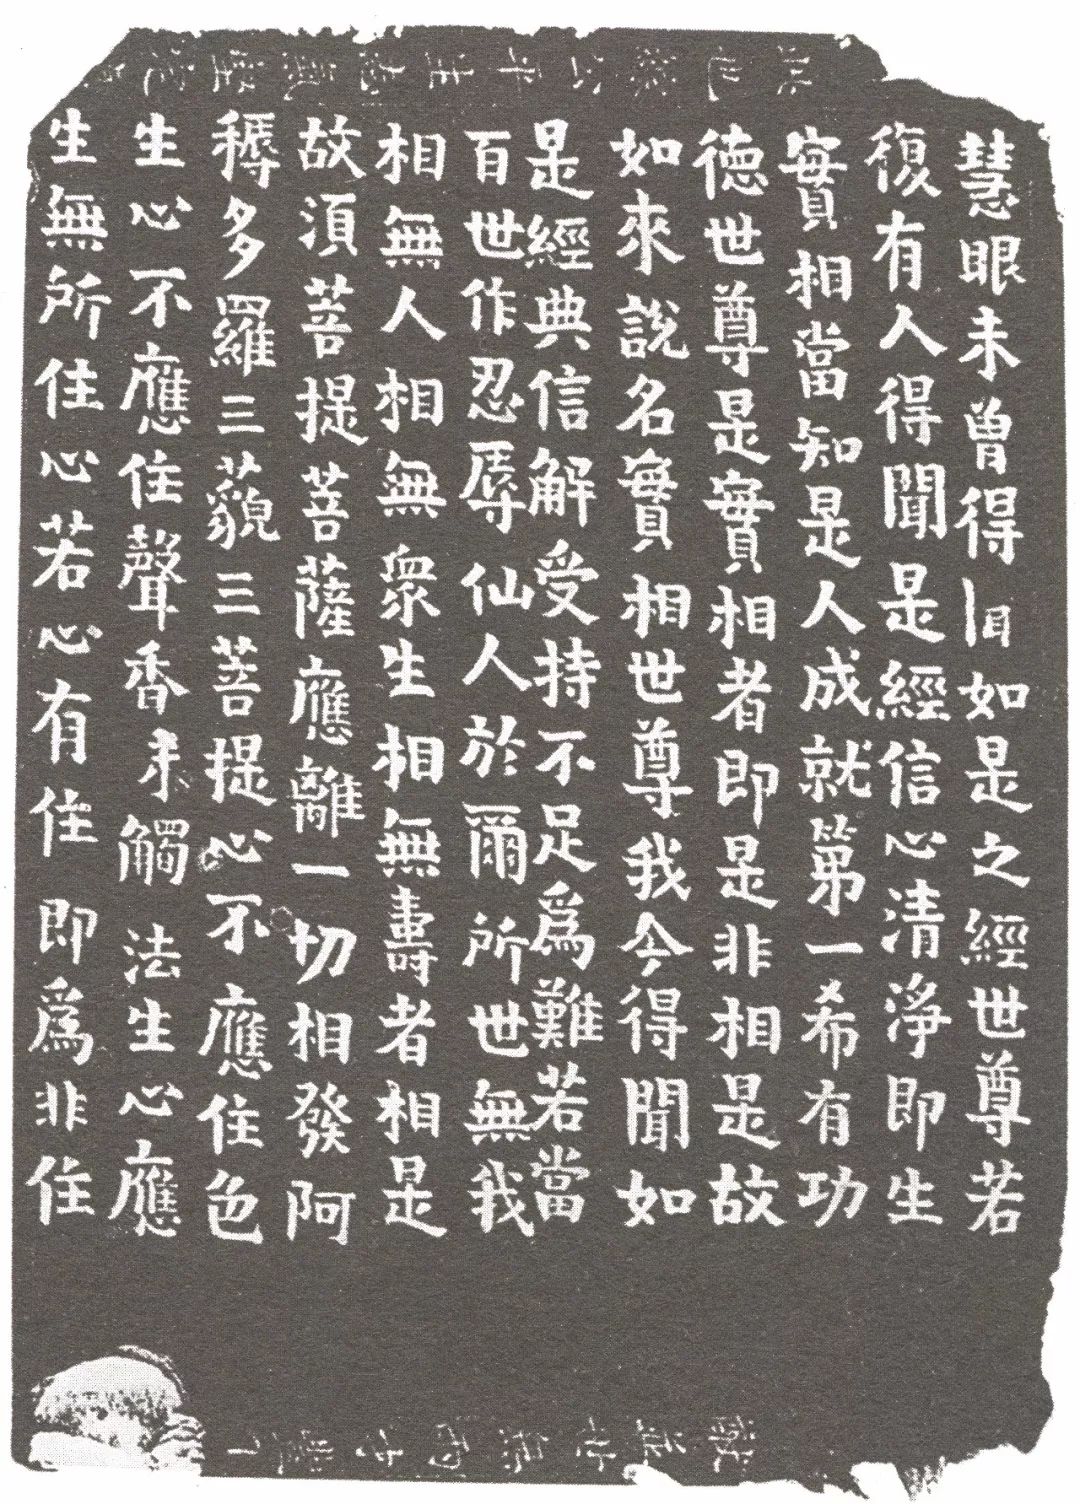 慧眼未曾得聞如是之經世尊若
復有人得聞是經信心清淨即生
實相當知是人成就第一希有功
德世尊是實相者即是非相是故
如來說名實相世尊我今得聞如
是經典信解受持不足爲難若當
百世作忍辱仙人於爾所世無我
相無人相無衆生相無壽者相是
故須菩提菩薩應離一切相發阿
耨多羅三藐三菩提心不應住色
生心不應住聲香味觸法生心應
生無所住心若心有住即爲非住